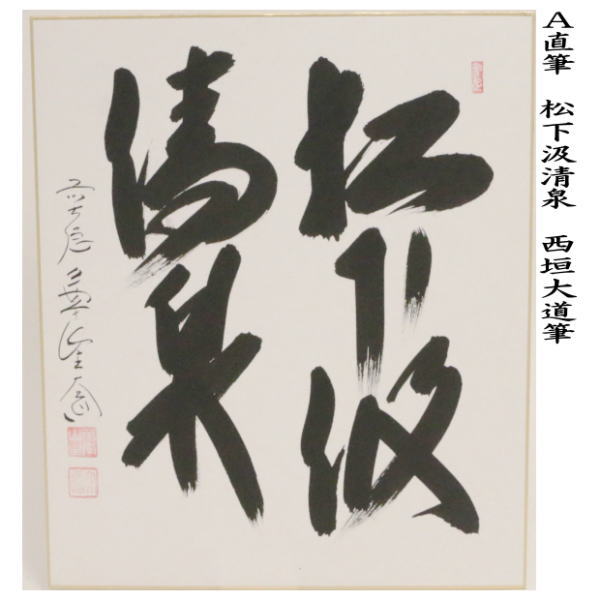 A直筆　松下汲清泉　西垣大道筆
松下汲
清泉